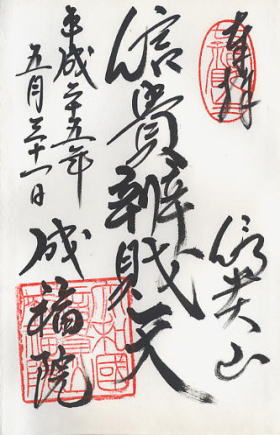 奉拝
信貴山
信貴辨財天
成福院
平成二十五年
五月三十一日